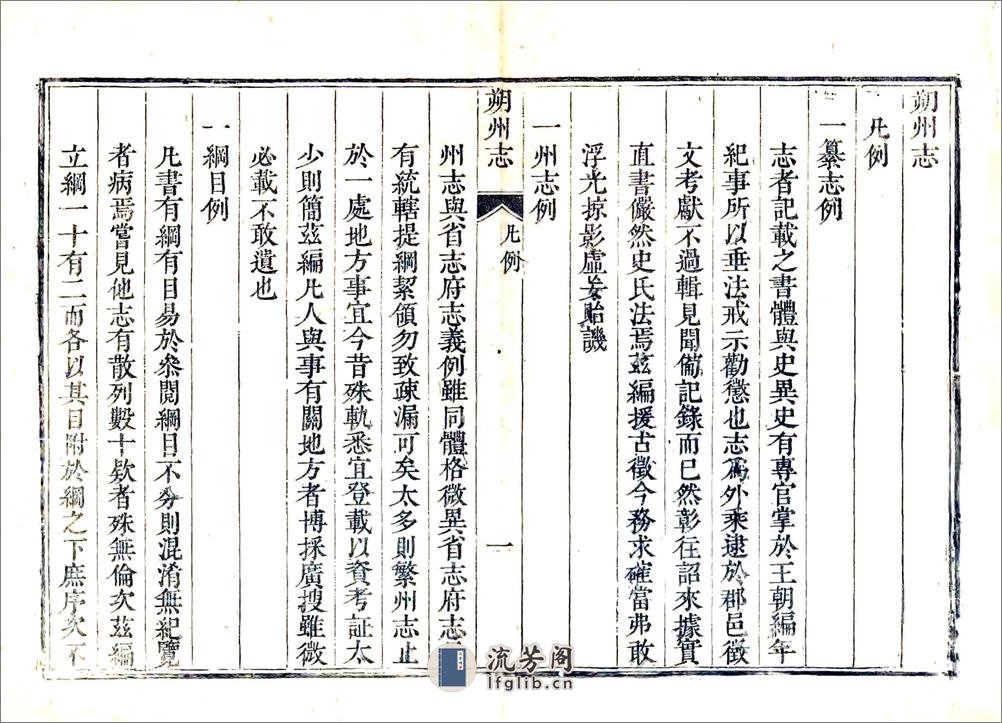 朔州志
凡例
一纂志例
志者記載之書體與史異史有專官掌於王朝編年
紀事所以垂法戒示勸懲也志爲外乘逮於郡邑徵
文考獻不過輯見聞備記錄而已然彰往詔來據實
直書儼然史氏法焉茲編援古徵今務求確當弗敢
浮光掠影虛妄貽譏
一州志例
朔州志
凡例
一
州志與省志府志義例雖同體格微異省志府志
有統轄提綱絜領勿致疎漏可矣太多則繁州志止
於一處地方事宜今昔殊軌悉宜登載以資考証太
少則簡茲編凡人與事有關地方者博採廣搜雖微
必載不敢遺也
一綱目例
凡書有綱有目易於叅閱綱目不分則混淆無紀覽
者病焉嘗見他志有散列數十欵者殊無倫次茲編
立綱一十有二而各以其目附於綱之下庶序次不
流芳阁
lfglib.cn